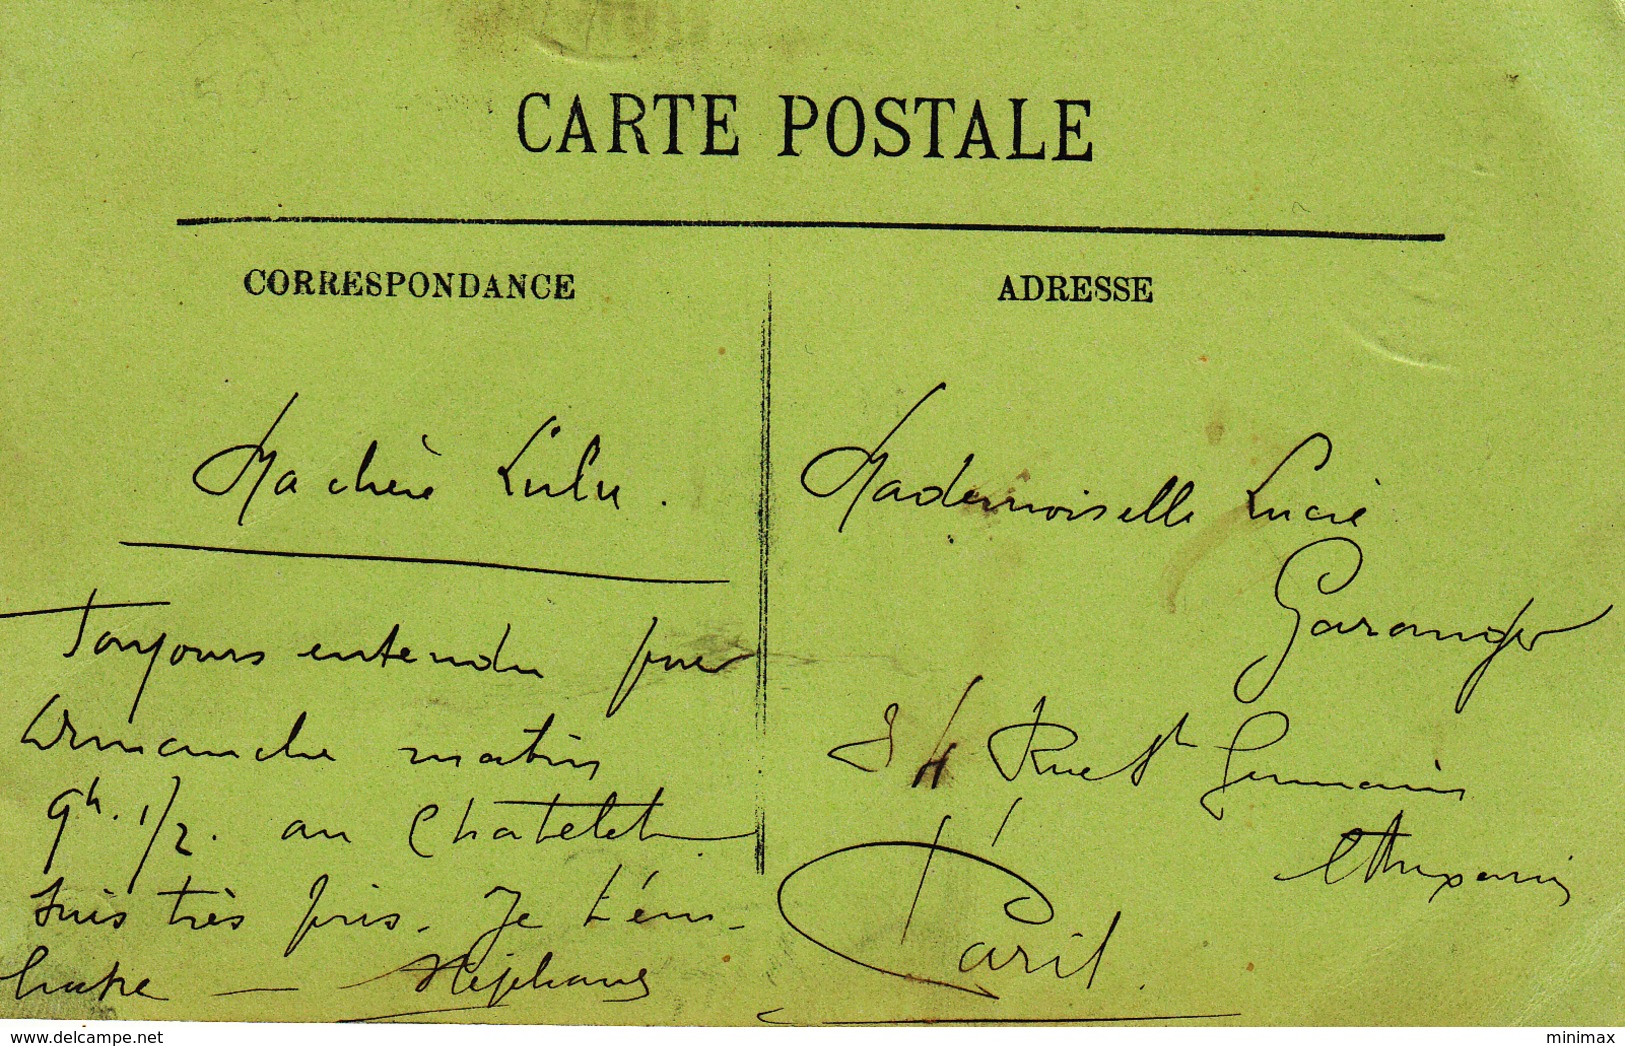 CARTE POSTALE
CORRESPONDANCE
ADRESSE
Ma chère Lulu.
Toujours entendu pour
dimanche matin
9h. 1/2. au Chatelet
suis très pris. Je t'em-
brasse — Stéphane
Mademoiselle Lucie
Garanger
34 Rue St Germain
l'Auxerrois
Paris.
delcampe.net
minimax